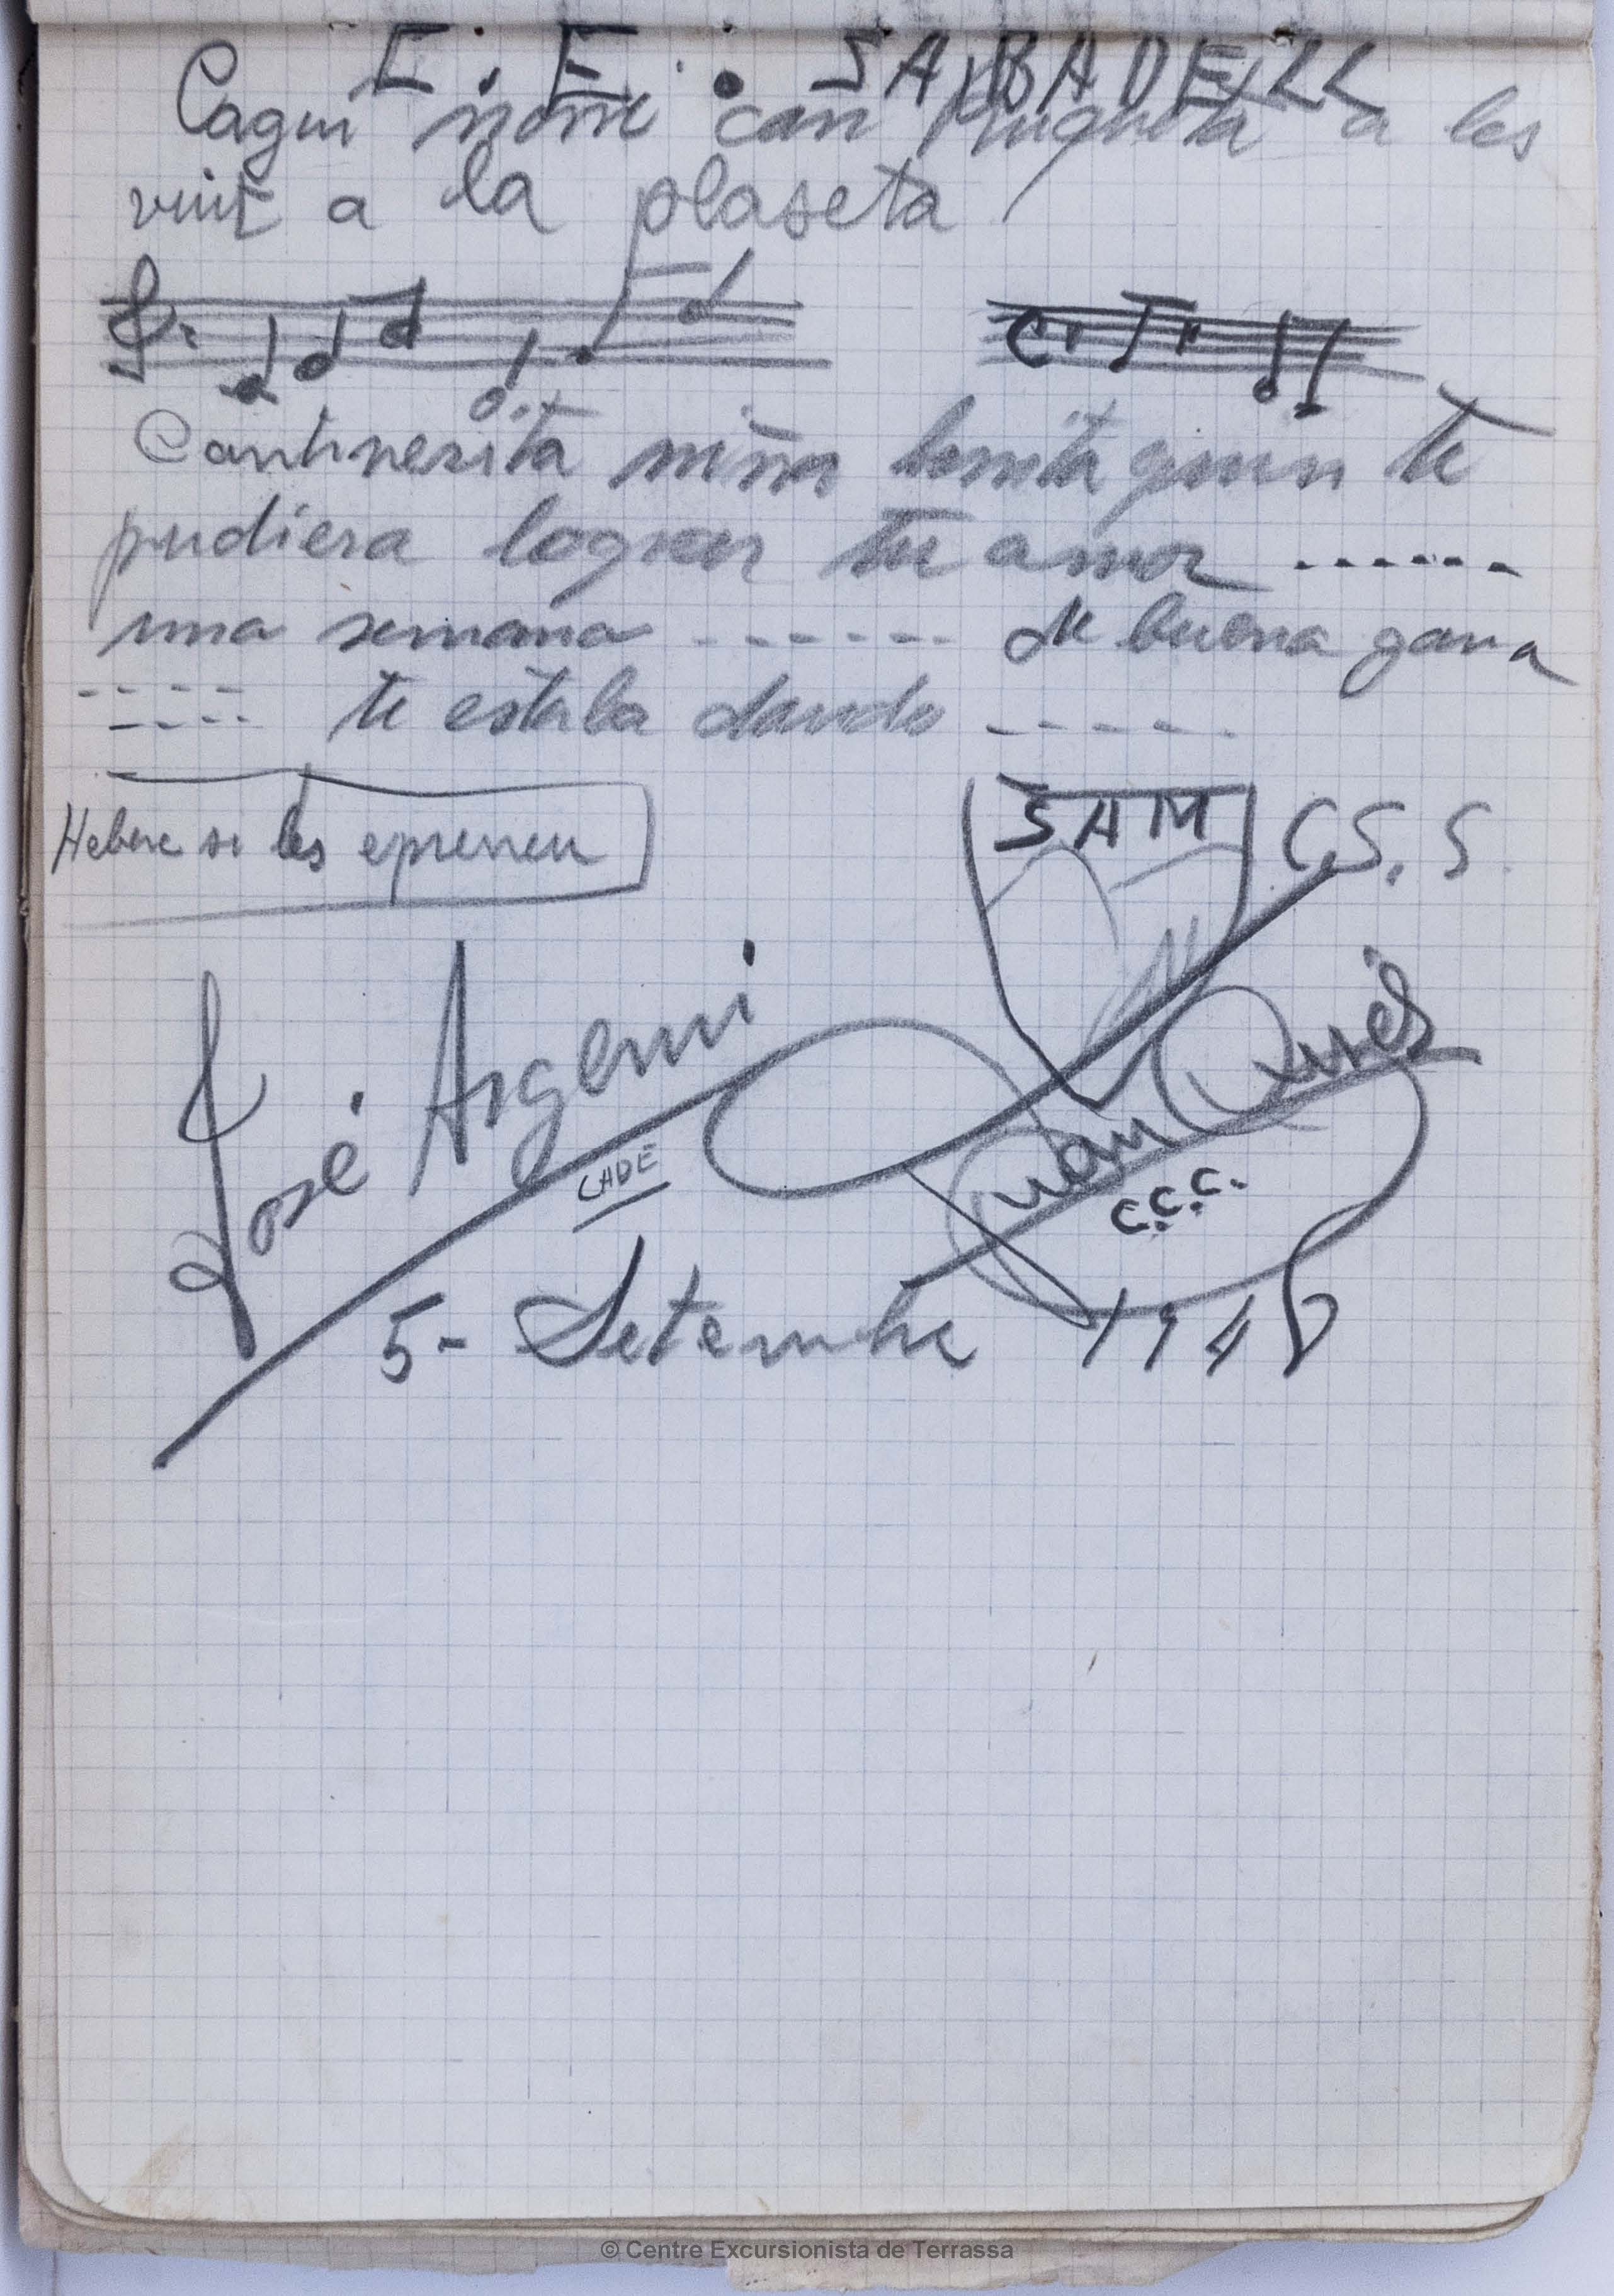 C. E. SABADELL
Cagui nom can a les
vuit a la plaseta
Cantinerita niña bonita quien te
pudiera lograr tu amor .......
una semana ------- de buena gana
---- ---- te estaba dando -----
Hebere si les epreneu
SAM C.S.S.
José Argemi
Juan Quer
CADE
C.C.C.
5- Setembre 1948
© Centre Excursionista de Terrassa